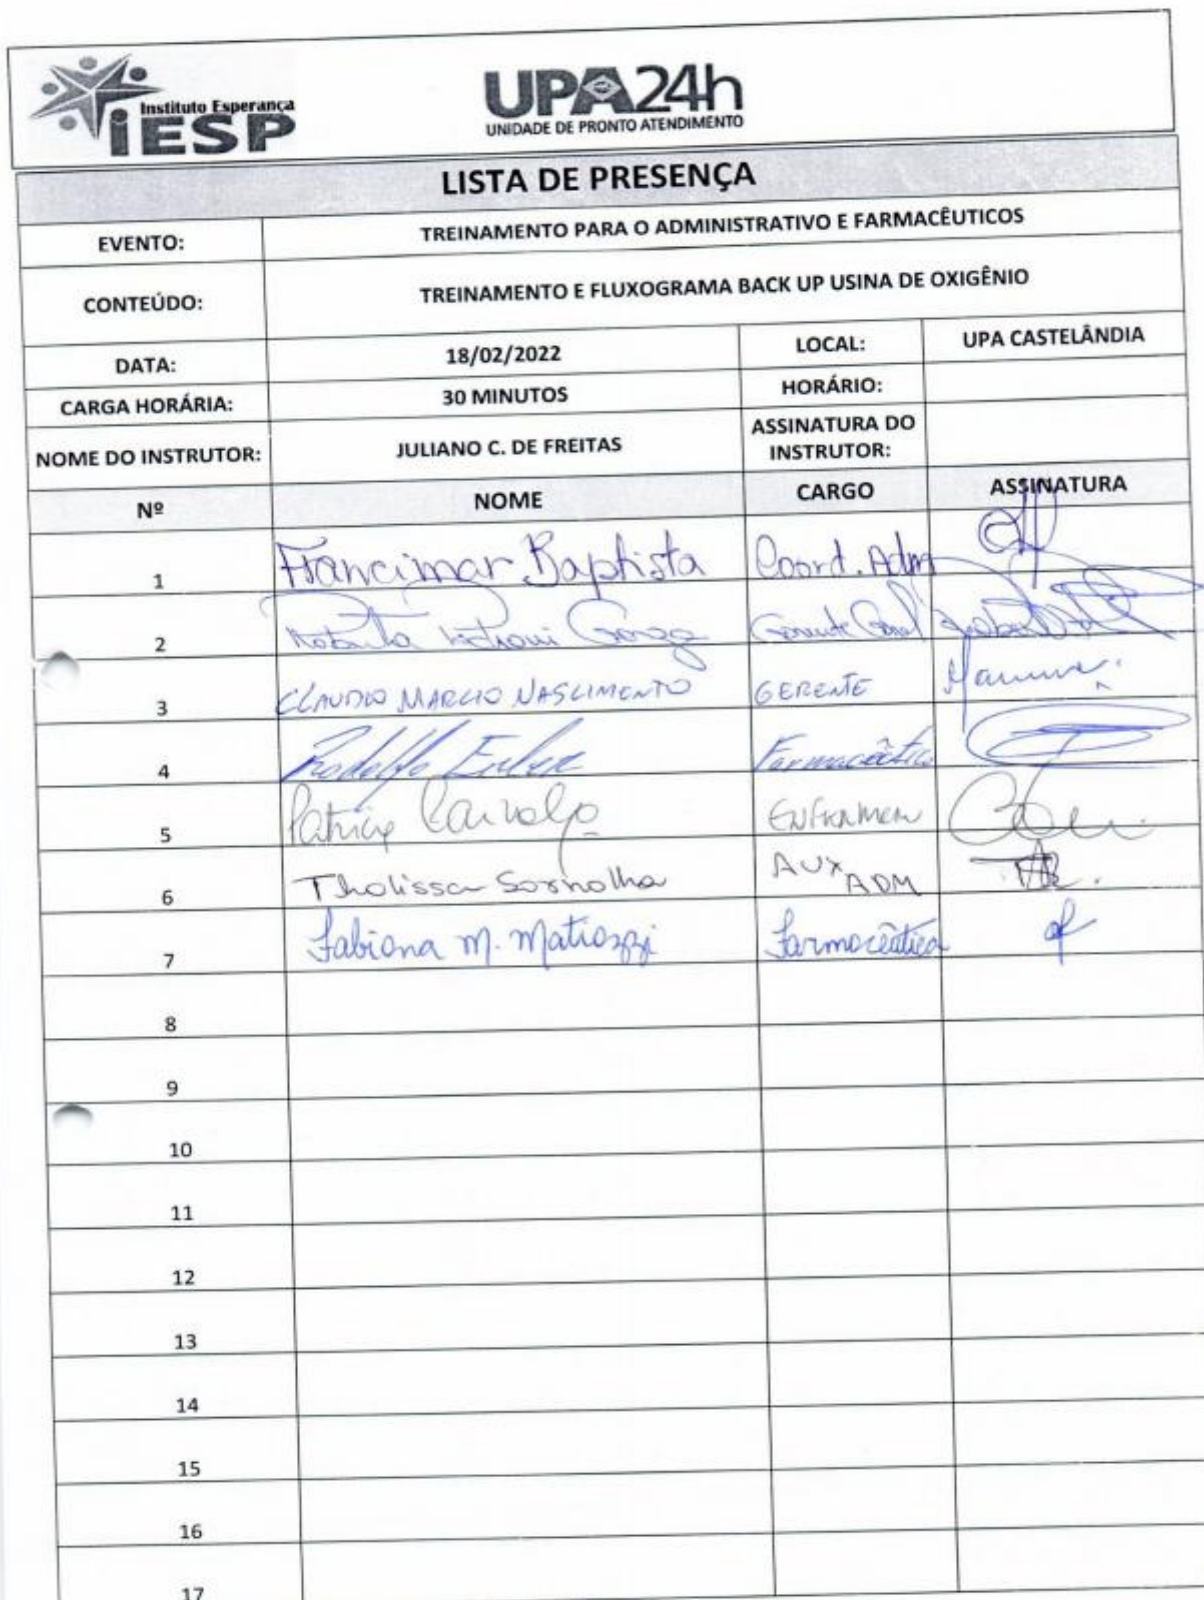 Instituto Esperança
IESP
UPA24h
UNIDADE DE PRONTO ATENDIMENTO
LISTA DE PRESENÇA
EVENTO: TREINAMENTO PARA O ADMINISTRATIVO E FARMACÊUTICOS
CONTEÚDO: TREINAMENTO E FLUXOGRAMA BACK UP USINA DE OXIGÊNIO
DATA: 18/02/2022 LOCAL: UPA CASTELÂNDIA
CARGA HORÁRIA: 30 MINUTOS HORÁRIO:
NOME DO INSTRUTOR: JULIANO C. DE FREITAS ASSINATURA DO INSTRUTOR:
Nº NOME CARGO ASSINATURA
1 Francimar Baptista Coord. Adm
2 Roberta Gerente Geral
3 CLAUDIO MARCIO NASCIMENTO GERENTE
4 Rodolfo Farmacêutico
5 Carvalho
6 Tholissa AUX ADM
7 Fabiana M. Matiozzi Farmacêutica
8
9
10
11
12
13
14
15
16
17